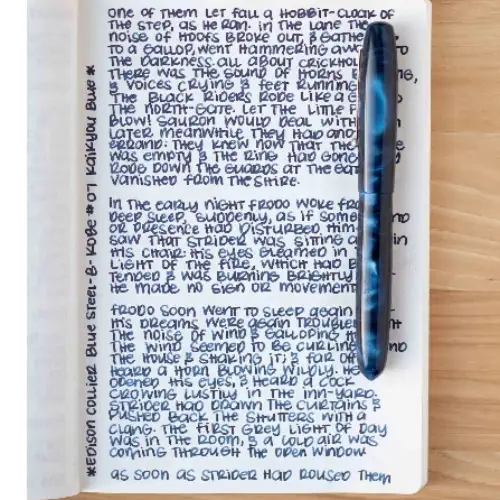 ONE OF THEM LET FALL A HOBBIT-CLOAK OF
THE STEP, AS HE RAN. IN THE LANE THE
NOISE OF HOOFS BROKE OUT, & GATHE
TO A GALLOP, WENT HAMMERING AW TO
THE DARKNESS. ALL ABOUT CRICKHOL
THERE WAS THE SOUND OF HORNS B NG,
& VOICES CRYING & FEET RUNNING
THE BLACK RIDERS RODE LIKE A G
THE NORTH-GATE. LET THE LITTLE P
BLOW! SAURON WOULD DEAL WITH
LATER. MEANWHILE THEY HAD ANO
ERRAND: THEY KNEW NOW THAT THE
WAS EMPTY & THE RING HAD GONE
RODE DOWN THE GUARDS AT THE GAT
VANISHED FROM THE SHIRE.
IN THE EARLY NIGHT FRODO WOKE FRO
DEEP SLEEP, SUDDENLY, AS IF SOME ND
OR PRESENCE HAD DISTURBED HIM
SAW THAT STRIDER WAS SITTING A IN
HIS CHAIR: HIS EYES GLEAMED IN
LIGHT OF THE FIRE, WHICH HAD B
TENDED & WAS BURNING BRIGHTLY
HE MADE NO SIGN OR MOVEMENT
FRODO SOON WENT TO SLEEP AGAIN
HIS DREAMS WERE AGAIN TROUBLE
THE NOISE OF WIND & GALLOPING H
THE WIND SEEMED TO BE CURLING ND
THE HOUSE & SHAKING IT; & FAR OF
HEARD A HORN BLOWING WILDLY. HE
OPENED HIS EYES, & HEARD A COCK
CROWING LUSTILY IN THE INN-YARD.
STRIDER HAD DRAWN THE CURTAINS &
PUSHED BACK THE SHUTTERS WITH A
CLANG. THE FIRST GREY LIGHT OF DAY
WAS IN THE ROOM, & A COLD AIR WAS
COMING THROUGH THE OPEN WINDOW
AS SOON AS STRIDER HAD ROUSED THEM
*EDISON COLLIER BLUE STEEL-B- KOBE #07 KAIKYOU BLUE*